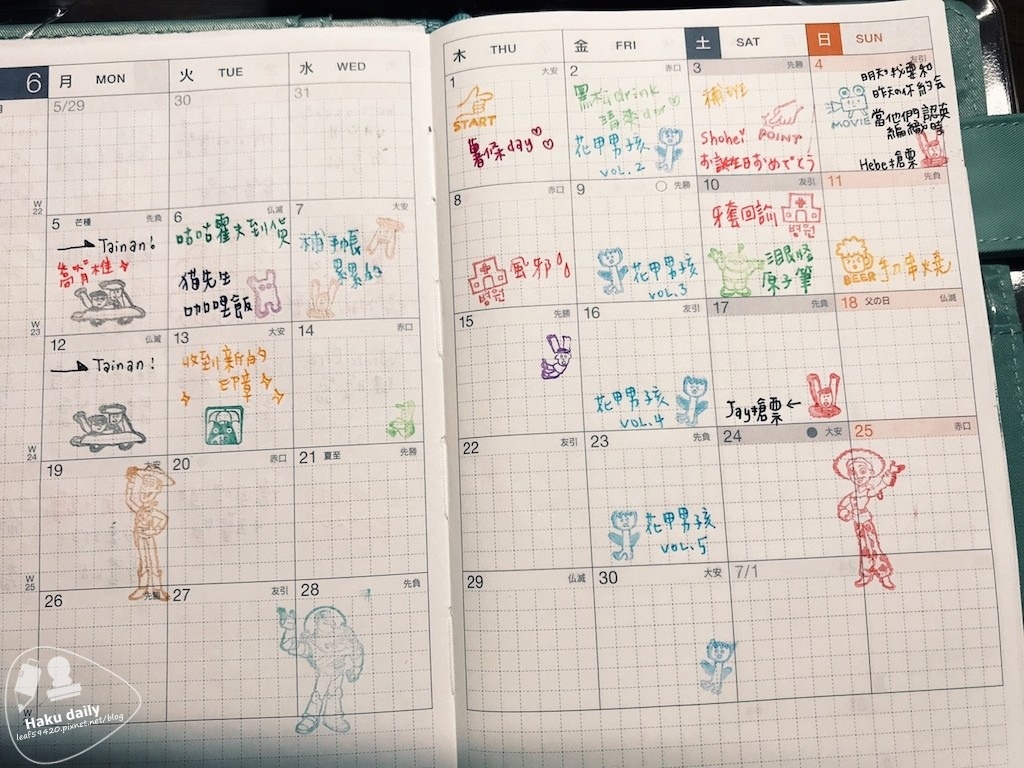 6 月 MON 火 TUE 水 WED
5/29 30 31
W22
5 芒種 先負
Tainan!
6 仏滅
咕咕霍夫到貨
貓先生
咖哩飯
7 大安
補手帳
累累的
W23
12 仏滅
Tainan!
13 大安
收到新的
印章
14 赤口
W24
19 大安
20 赤口
21 夏至 先勝
W25
26 先勝
27 友引
28 先負
木 THU 金 FRI 土 SAT 日 SUN
1 大安
START
薯條day♡♡
2 赤口
黑松drink
花甲男孩
VOL.2
3 先勝
補班
Shohei POINT
お誕生日おめでとう
4 友引
MOVIE
明天找要和
昨天的你約會
當他們認真
編織時
Hebe搶票
8 赤口
병원 風邪
9 先勝
花甲男孩
VOL.3
10 友引
牙套回診
병원
三眼怪
原子筆
11 先負
BEER 串燒
15 先勝
16 友引
花甲男孩
VOL.4
17 先負
Jay搶票←
18 父の日 仏滅
22 友引
23 先負
花甲男孩
VOL.5
24 大安
25 赤口
29 仏滅
30 大安
7/1
Haku daily
leaf59420.pixnet.net/blog